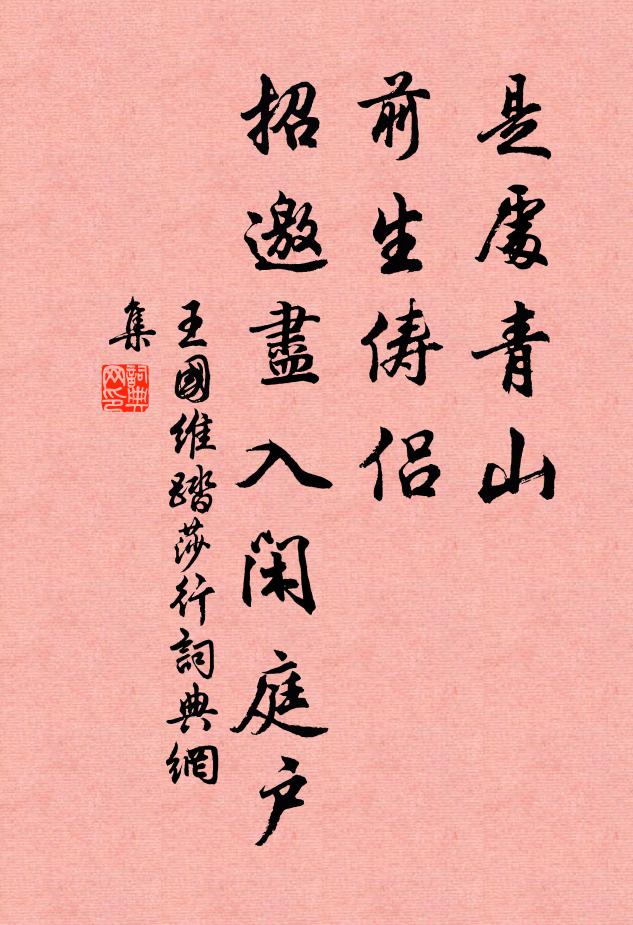 是處青山
前生儔侶
招邀盡入閑庭戶
王國維踏莎行詞典網
集
詞典
网印